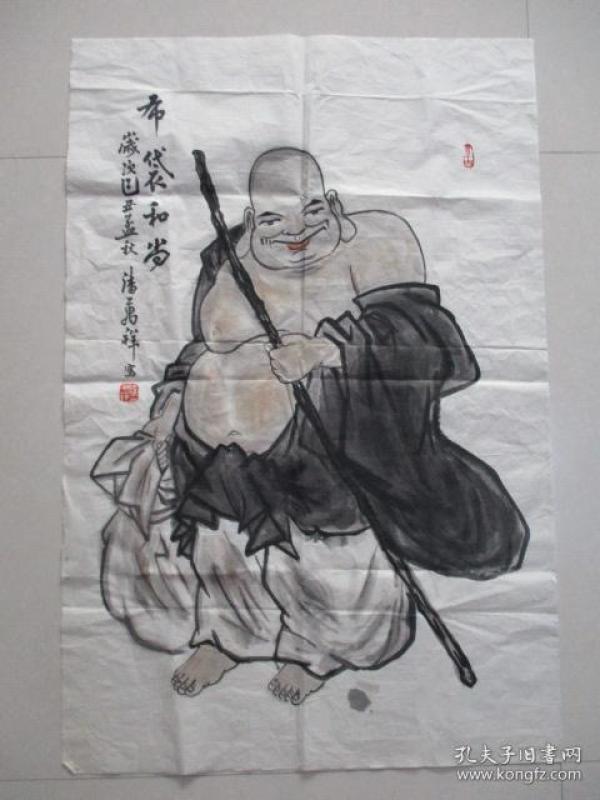 布袋和尚
歲次己丑孟秋 潘万祥 寫
孔夫子旧書网
www.kongfz.com